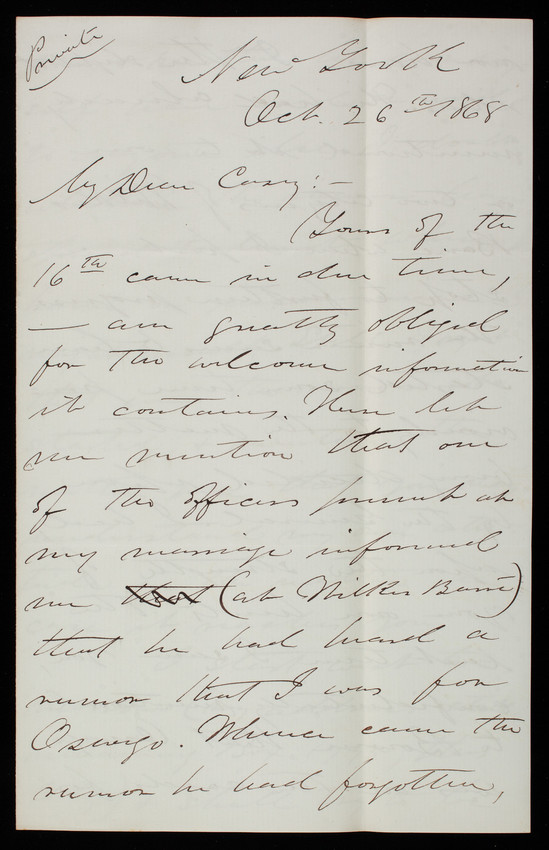 Private
New York
Oct. 26th 1868
My Dear Casey:—
Yours of the
16th came in due time,
— am greatly obliged
for the welcome information
it contains. Here let
me mention that one
of the officers present at
my marriage informed
me that (at Wilkes Barré)
that he had heard a
rumor that I was for
Oswego. Whence came the
rumor he had forgotten,